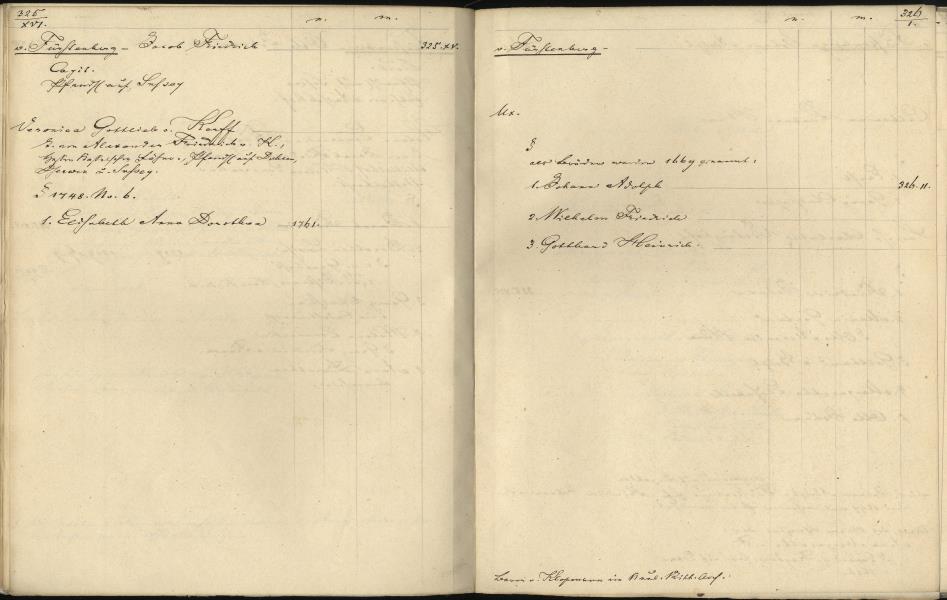 325
XVI.
n. m.
v. Fürstenberg – Jacob Friedrich 325. XV.
Capit.
Pfandh. auf Lassey
Veronica Gottlieb v. Korff
T. von Alexander Friedrich v. K.,
Pfandh. auf Dahlen,
u. Lassey.
§ 1748. No. 6.
1. Elisabeth Anna Dorothea 1761.
n. m.
326
I.
v. Fürstenberg –
Ux.
§
als Brüder werden 1669 genannt:
1. Johann Adolph 326. II.
2. Wilhelm Friedrich
3. Gotthard Heinrich.
Baron v. Klopmann im Kurl. Ritt. Arch.